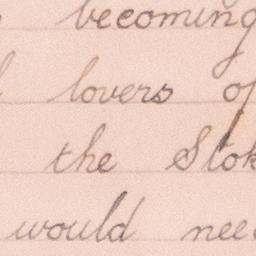 becoming
lovers of
the Stok
would nee